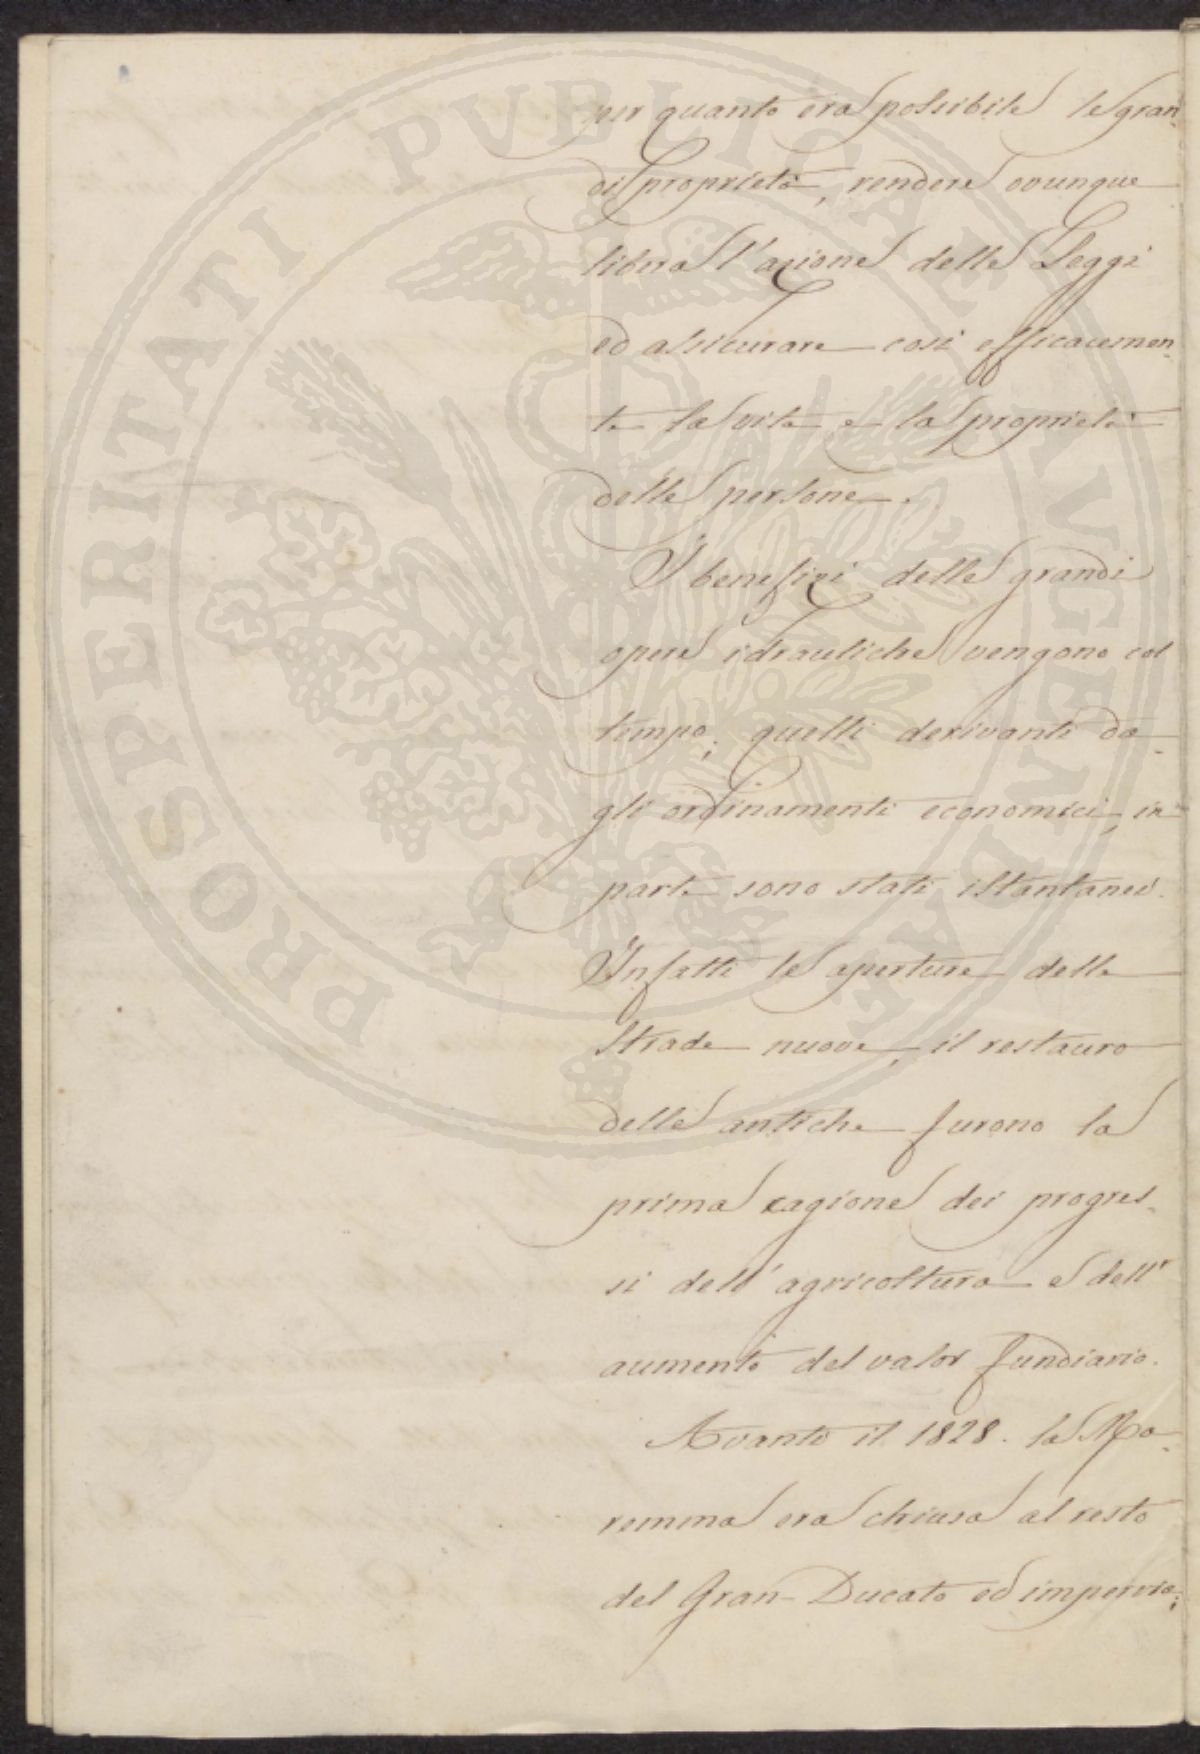 per quanto era possibile le gran-
di proprietà, rendere ovunque
libera l'azione delle Leggi
ed assicurare così efficacemen-
te la vita e la proprietà
delle persone.
I benefizi delle grandi
opere idrauliche vengono col
tempo; quelli derivanti da-
gli ordinamenti economici, in
parte sono stati istantanei.
Infatti le aperture delle
Strade nuove, il restauro
delle antiche furono la
prima cagione dei progres-
si dell'agricoltura e dell'
aumento del valor fundiario.
Avanti il 1828. la Ma-
remma era chiusa al resto
del Gran-Ducato ed impervia;
PROSPERITATI PVBLICAE AVGENDAE